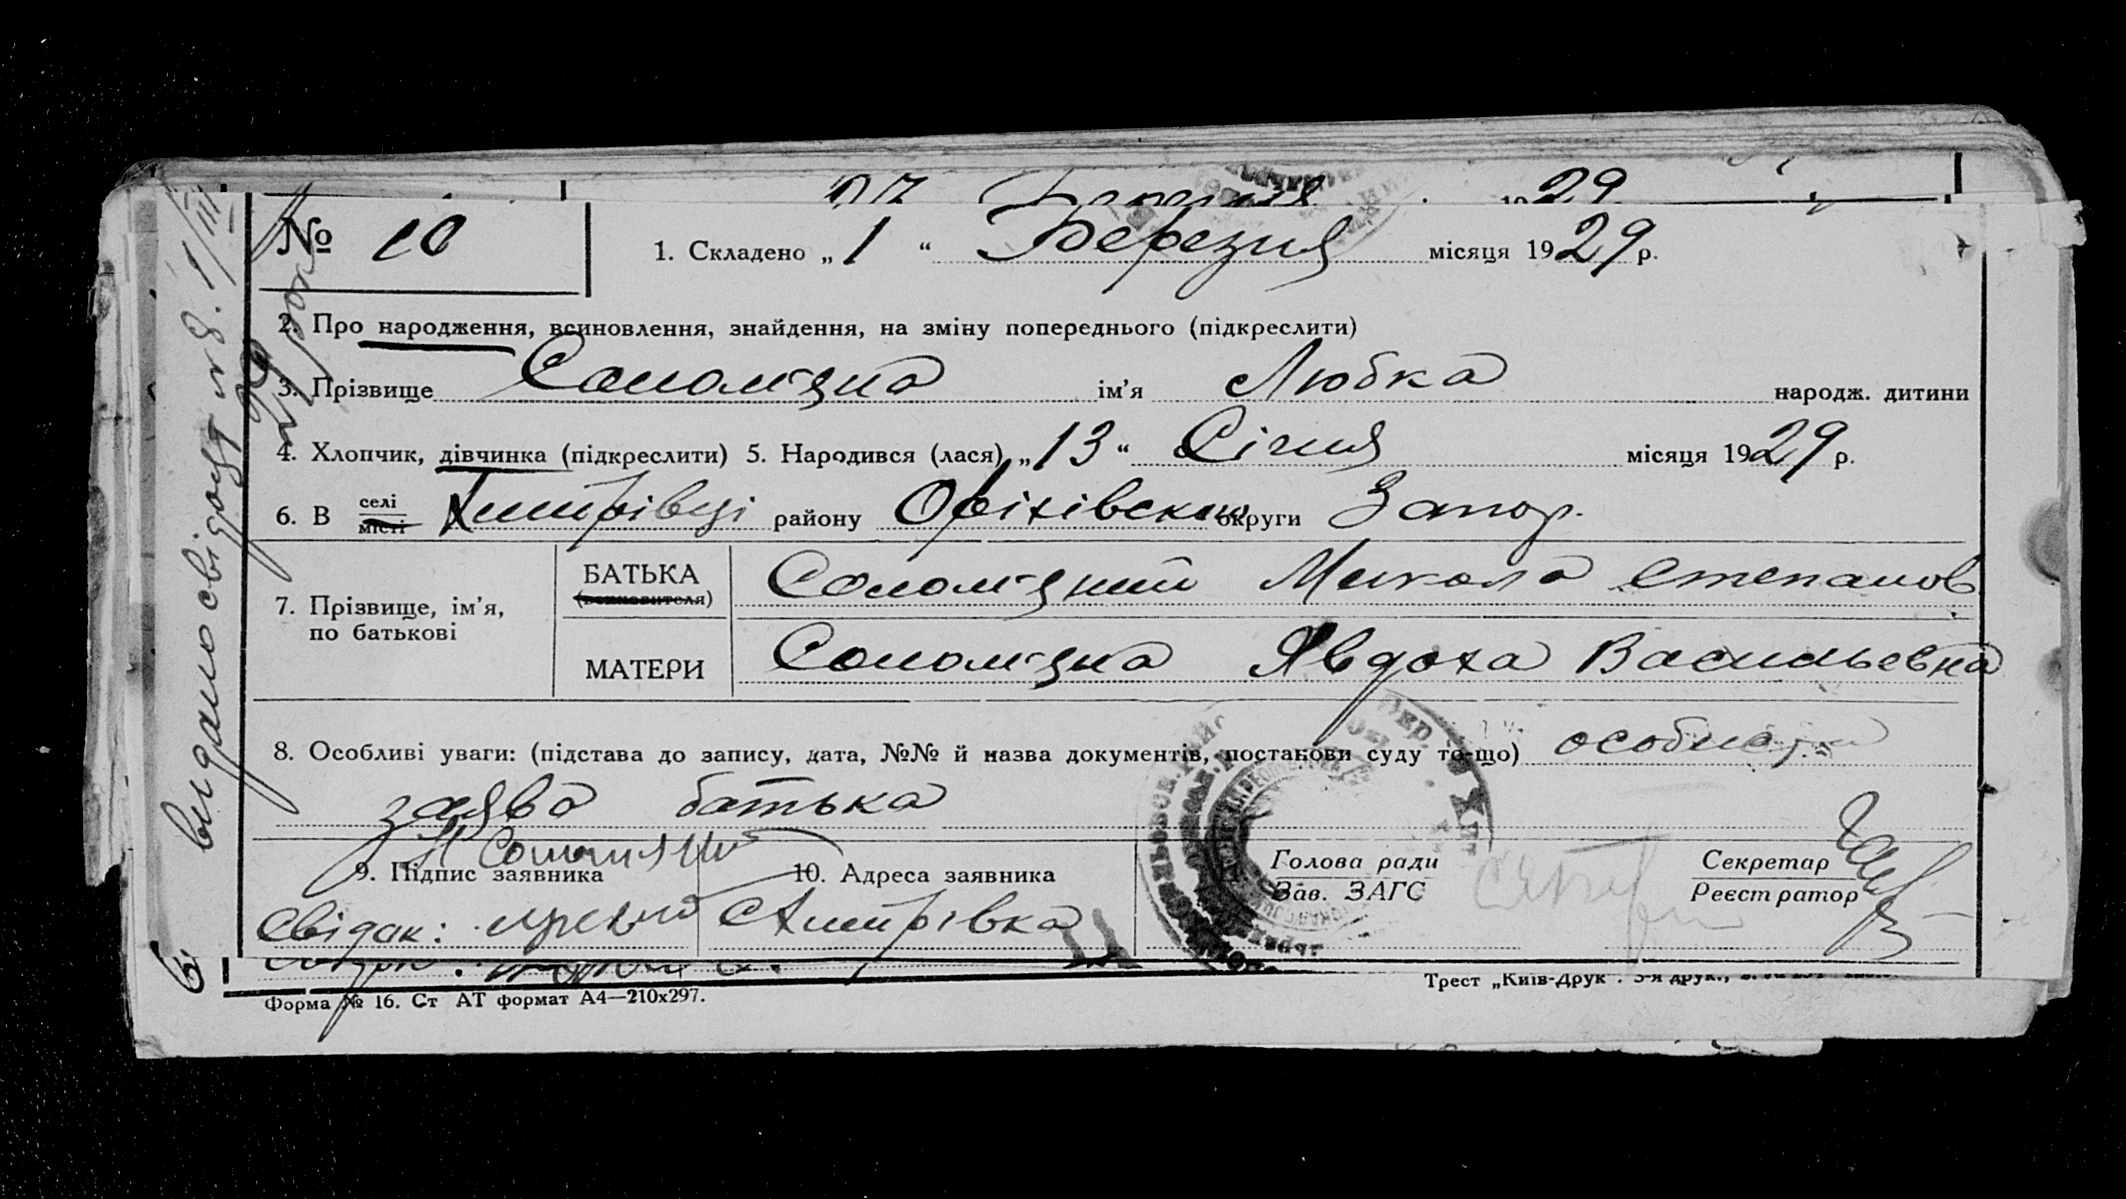 № 10
1. Складено „ 1 “ Березня місяця 1929 р.
2. Про народження, всиновлення, знайдення, на зміну попереднього (підкреслити)
3. Прізвище Солом'яна ім'я Любка народж. дитини
4. Хлопчик, дівчинка (підкреслити) 5. Народився (лася) „ 13 “ Січня місяця 1929 р.
6. В селі місті Дмитрівці району Оріхівського округи Запор.
7. Прізвище, ім'я, по батькові
БАТЬКА (всиновителя) Солом'яний Микола Степанов
МАТЕРИ Солом'яна Явдоха Васильевна
8. Особливі уваги: (підстава до запису, дата, №№ й назва документів, постанови суду то-що) особиста
заява батька
9. Підпис заявника
10. Адреса заявника
Голова ради
Зав. ЗАГС
Секретар
Реєстратор
Свідок: Дмитрівка
Форма № 16. Ст АТ формат А4—210х297.
Трест „Київ-Друк“.
видано свідоцт №8. 1/III
29 рок